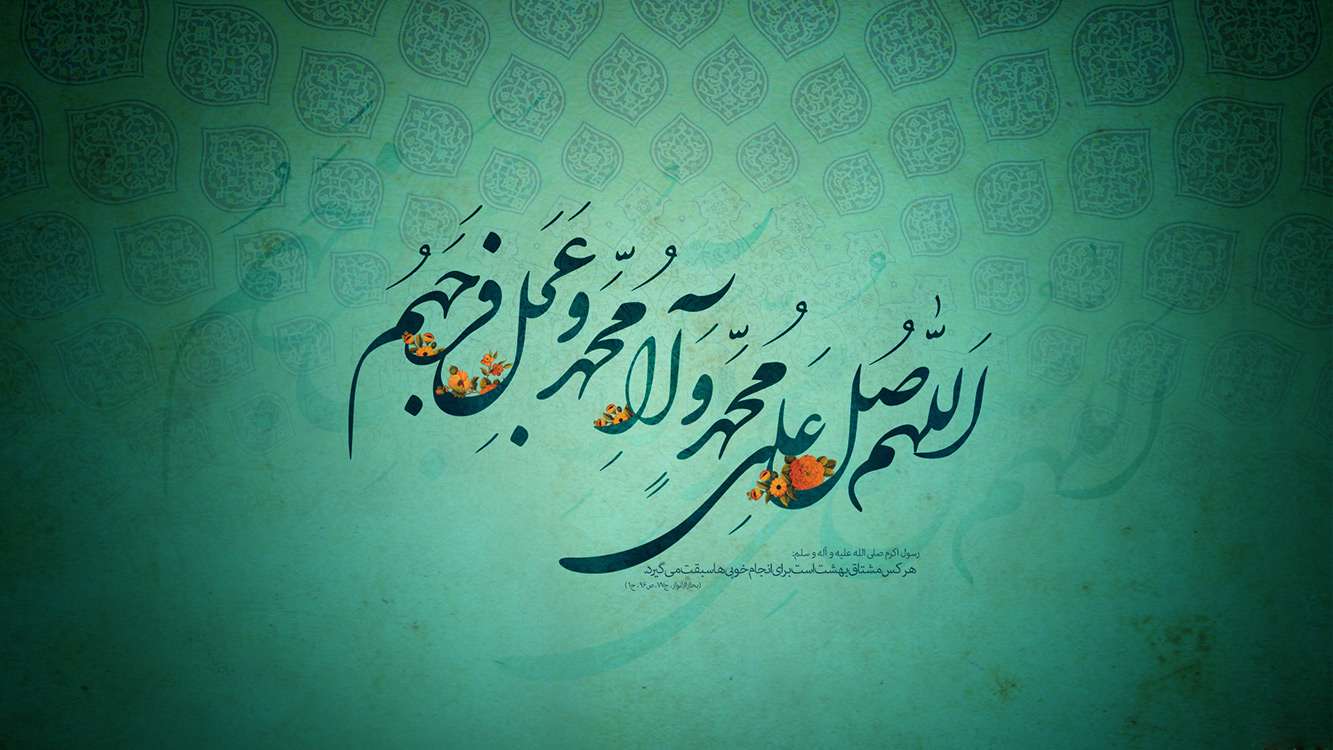 اَللّٰهُمَّ صَلِّ عَلی مُحَمَّدٍ وَ آلِ مُحَمَّد وَ عَجِّل فَرَجَهُم
رسول اکرم صلی الله علیه و آله و سلم:
هر کس مشتاق بهشت است برای انجام خوبی ها سبقت می گیرد.
(بحارالانوار، ج